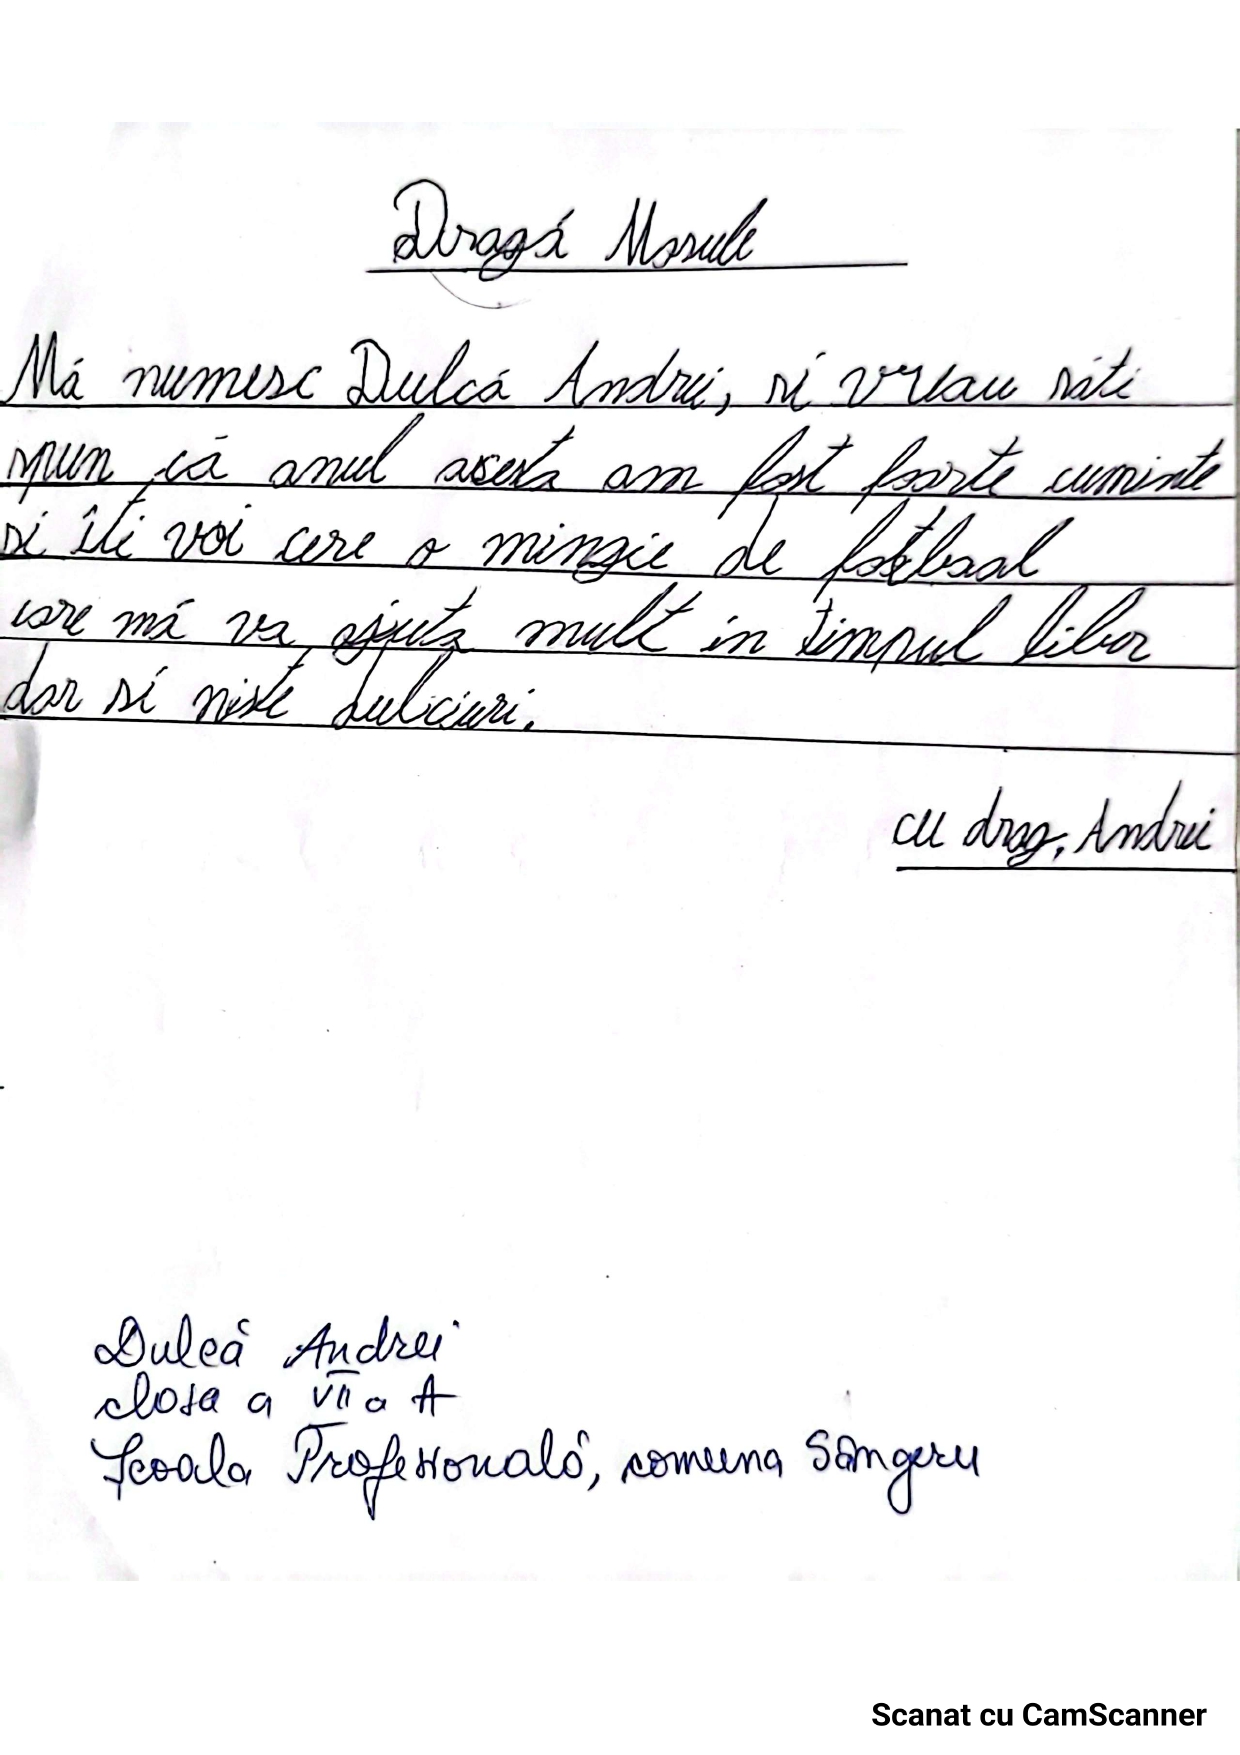 Dragă Mosule
Mă numesc Dulcă Andrei, si vreau săti
spun că anul acesta am fost foarte cuminte
si îti voi cere o mingie de fotbaal
care mă va ajuta mult in timpul liber
dar si niste dulciuri.
cu drag, Andrei
Dulcă Andrei
clasa a VII a A
Școala Profesională, comuna Sângeru
Scanat cu CamScanner